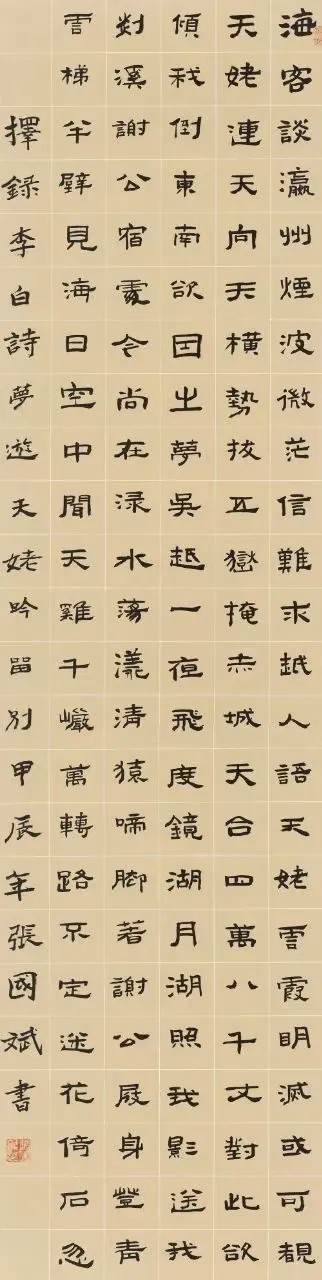 海客談瀛州煙波微茫信難求越人語天姥雲霞明滅或可覩
天姥連天向天橫勢拔五嶽掩赤城天台四萬八千丈對此欲
傾我倒東南欲因之夢吳越一夜飛度鏡湖月湖照我影送我
剡溪謝公宿處今尚在淥水蕩漾清猿啼脚著謝公屐身登青
雲梯半壁見海日空中聞天雞千巖萬轉路不定迷花倚石忽
擇錄李白詩夢遊天姥吟留別甲辰年張國斌書